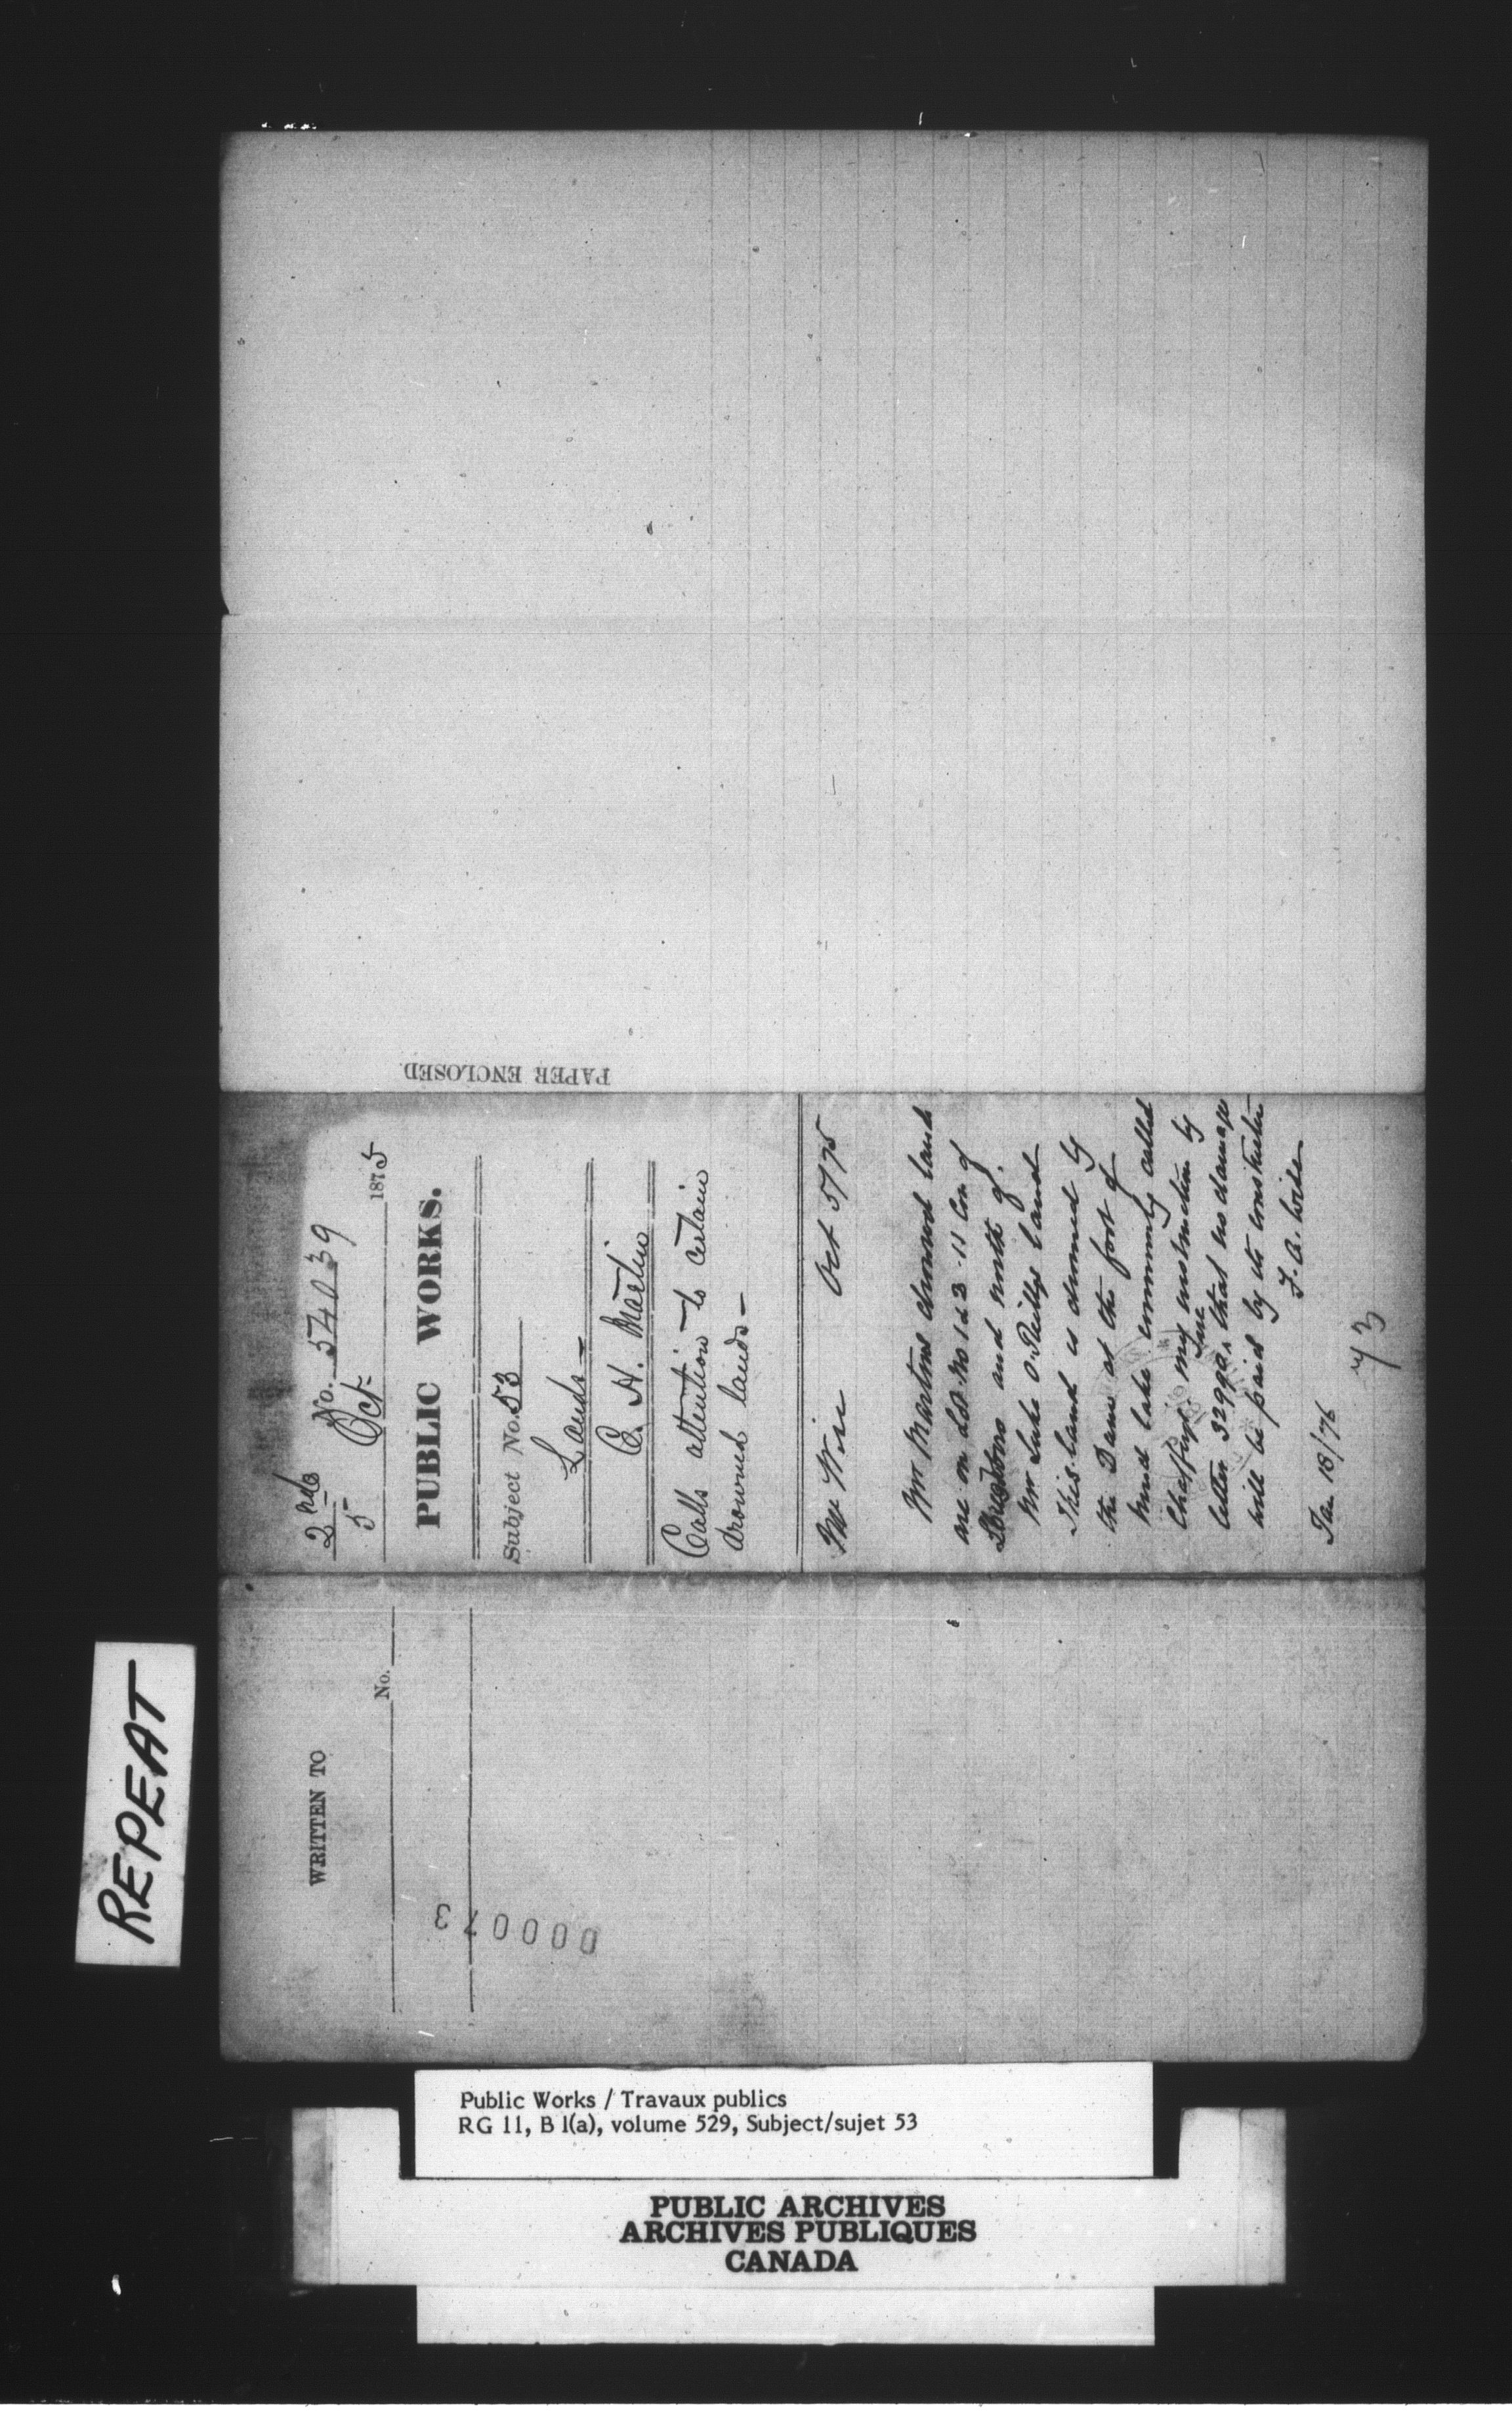 REPEAT
PAPER ENCLOSED
2nd No. 54039
5 Oct. 1875
PUBLIC WORKS.
Subject No. 53
Lands
C. H. Martin
Calls attention to certain
drowned lands
Mr Wise Oct 5/75
Mr Martins drowned lands
are on Lot No 1 & 2 11 Con of
and north of.
Mr Luke O.Reillys land
This land is drowned by
the Dam at the foot of
Mud lake commonly called
my instruction by
letter 32990 that no damage
will be paid by its construction
F. A. Wise
Jan 18/76
73
WRITTEN TO
No.
000073
Public Works / Travaux publics
RG 11, B 1(a), volume 529, Subject/sujet 53
PUBLIC ARCHIVES
ARCHIVES PUBLIQUES
CANADA